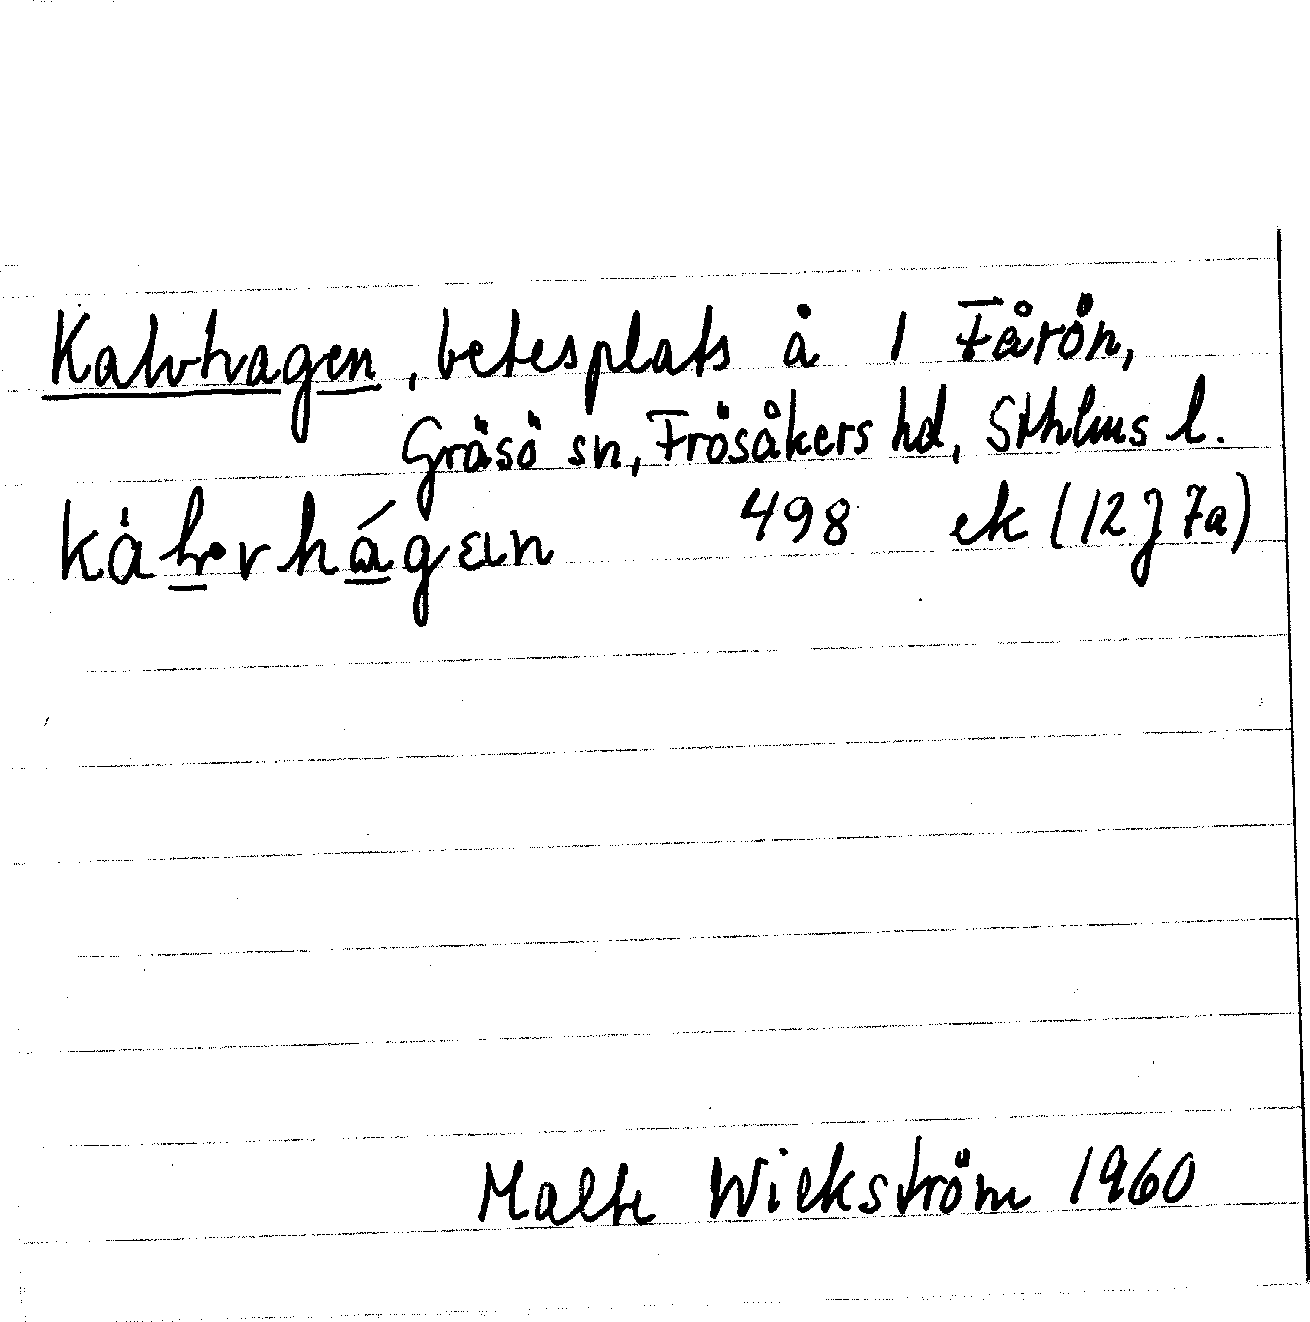 Kalvhagen, betesplats å 1 Fårön,
Gräsö sn, Frösåkers hd, Sthlms l.
498 ek (12J 7a)
Malte Wickström 1960